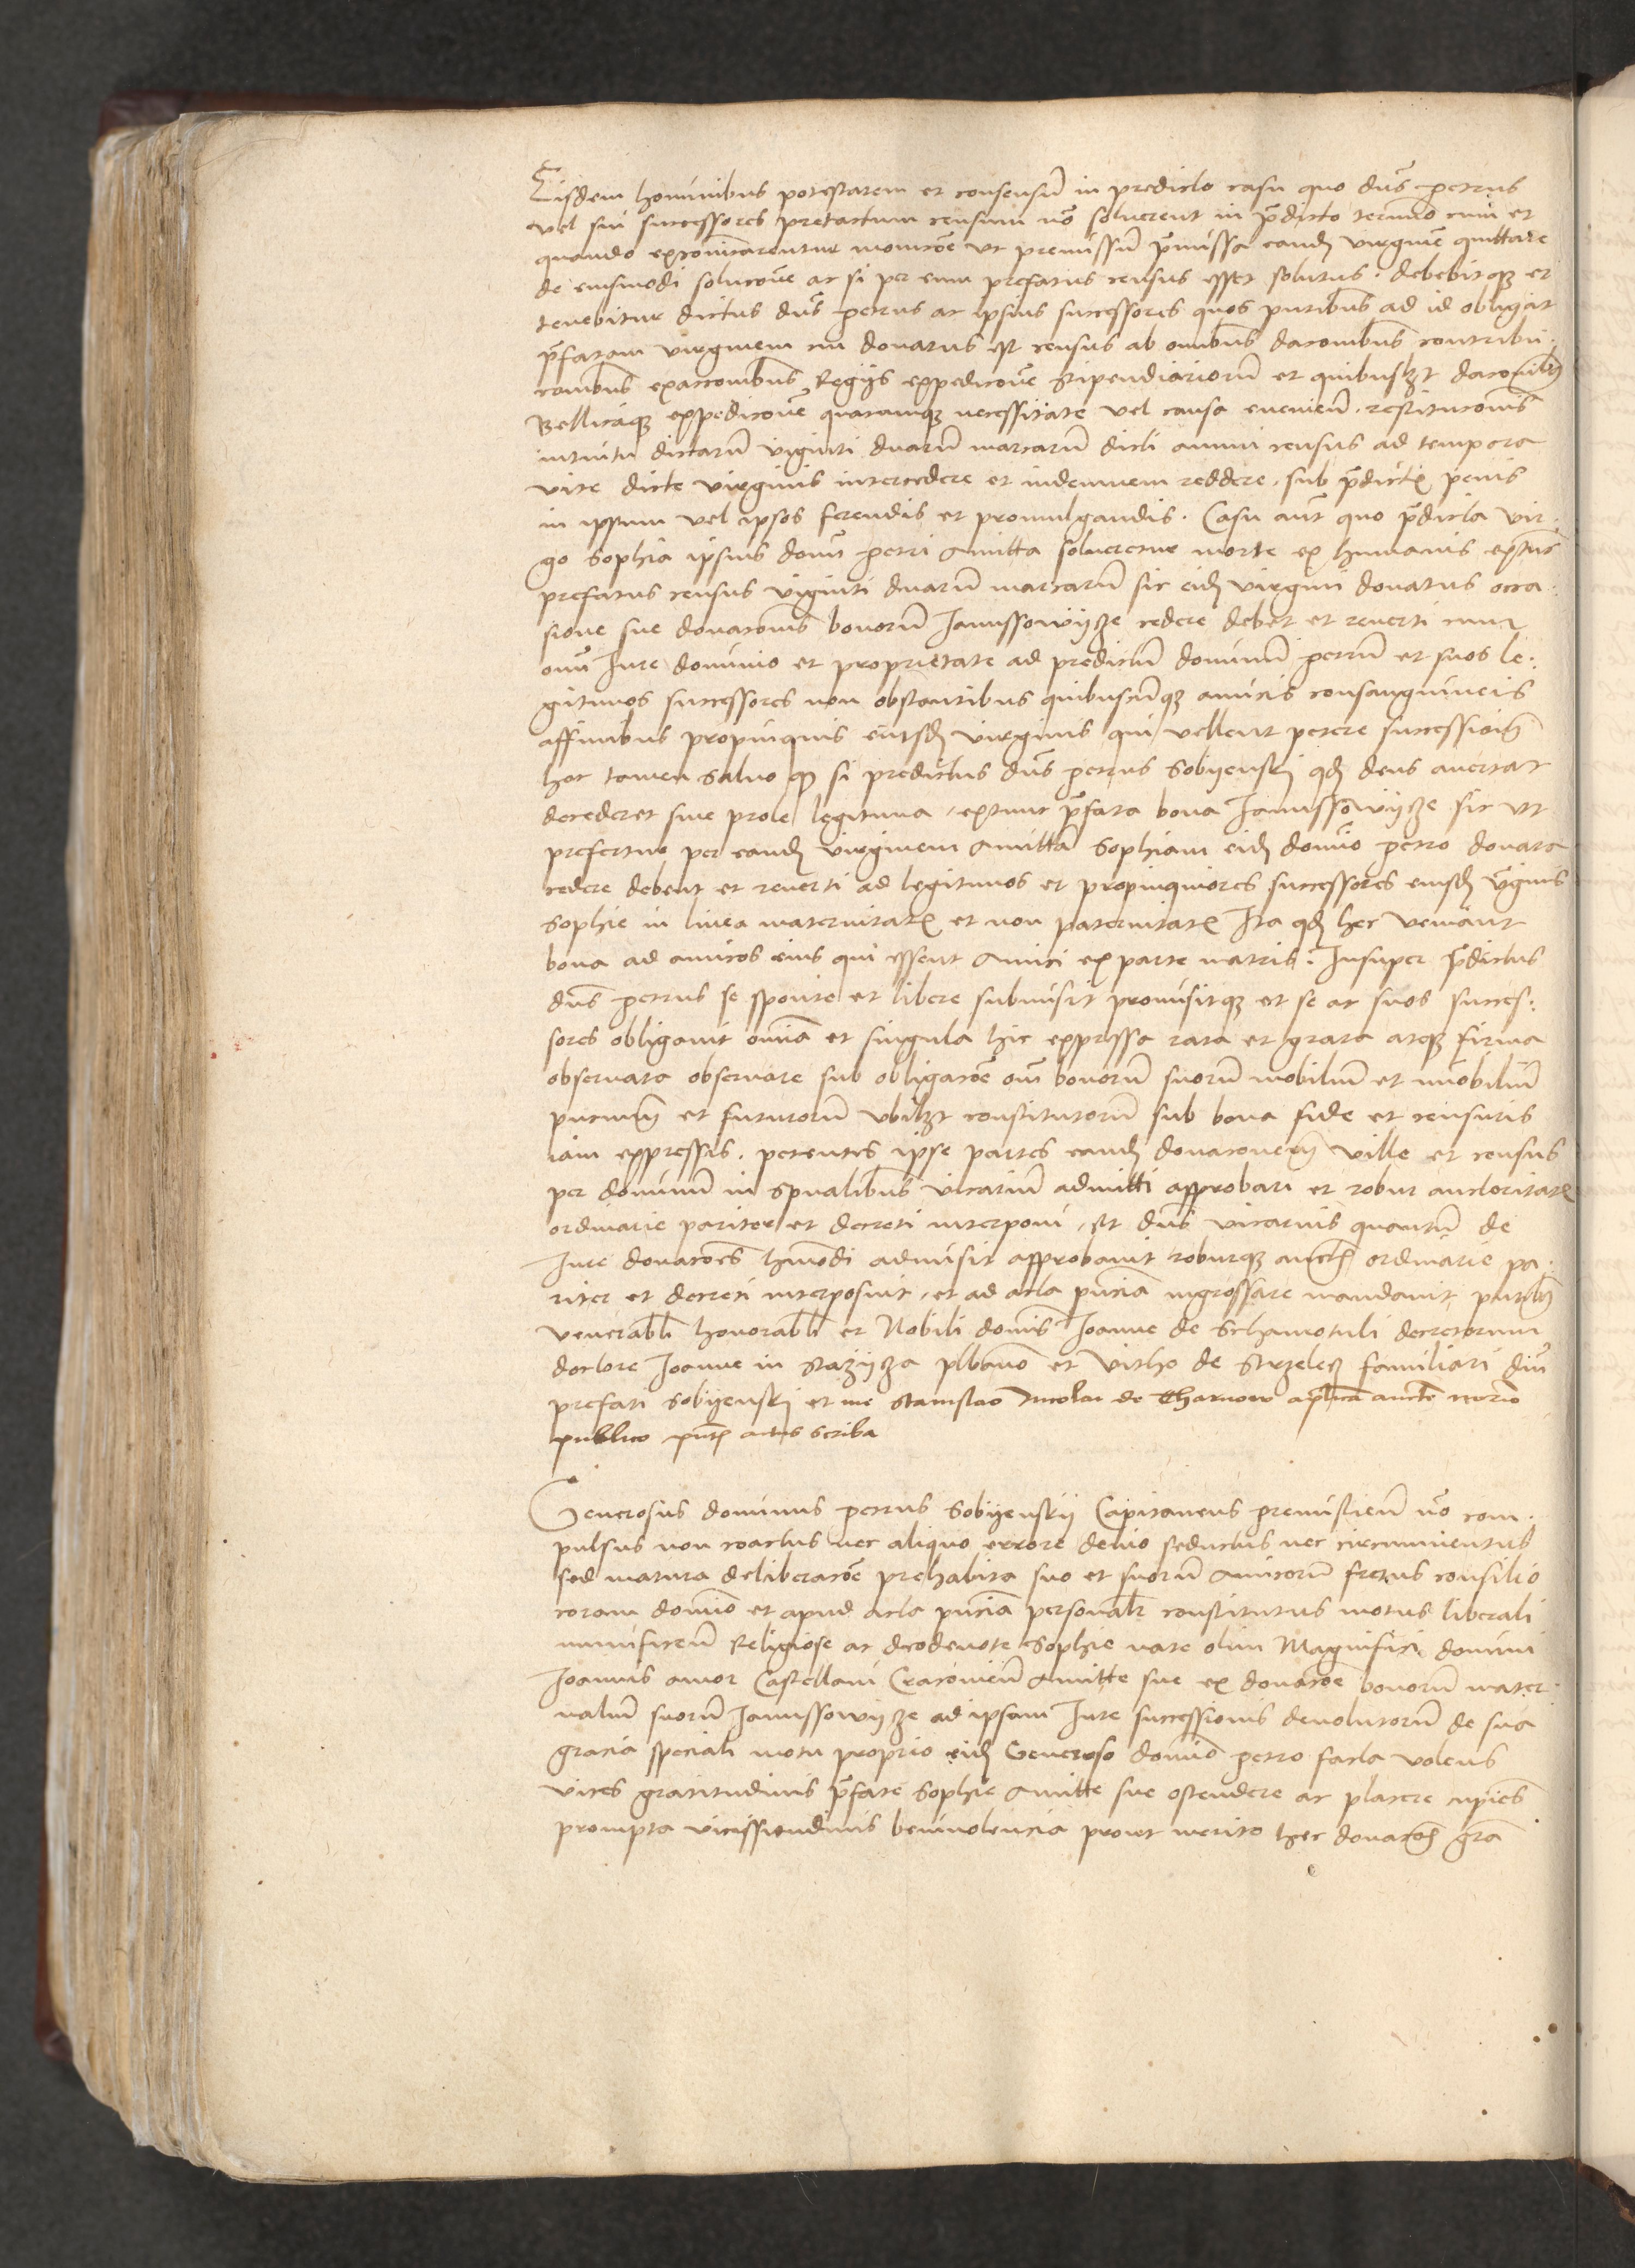 Eisdem hominibus potestatem et consensũ in predicto casu quo dñs petrus
vel sui successores pretactum censum nõ soluerent in p̃dicto termino cum et
quando excom̃icarentur monicõe ut premissũ p̃missa eandẽ virginẽ quittare
de eiusmodi solucõne ac si per eum prefatus census esset solutus . debebitqz et
tenebitur dictus dñs petrus ac ipsius successores quos pñtibus ad id obligat
p̃fatam virginem cui donatus est census ab omibus daconibus contribu
conibus exaccombus Regijs expedicone stipendiariorũ et quibuslzt daconibus
Bellicaqz expedicone quacumqz necessitate vel causa eueniẽn . restituconis
intuitu dictarũ viginti duarũ marcarũ dicti annui census ad tempora
vite dicte virginis intercedere et indemnem reddere , sub p̃dictis penis
in ipsum vel ipsos ferendis et promulgandis . Casu aũt quo p̃dicta vir⸗
go Sophia ipsius domi petri Amitta solueretur morte ex humanis extunc
prefatus census viginti duarũ marcarũ sic eidẽ virgini donatus occa⸗
sione sue donaconis bonorũ Janussowijcze cedere debet et reuerti cum
omi Jure dominio et proprietate ad predictũ dominũ petrũ et suos le⸗
gitimos successores non obstantibus quibuscũqz amicis consanguineis
affinibus propinquis eiusdẽ virginis qui vellent petere successionẽ
hoc tamen saluo qz si predictus dñs petrus Sobijenskj qd deus auertat
decederet sine prole legitima , extunc p̃fata bona Janussowijcze sic vt
prefertur per eandẽ virginem Amittã Sophiam eidẽ domino petro donata
cedere debent et reuerti ad legitimos et propinquiores successores eiusdẽ v̄ginis
Sophie in linea maternitatis et non paternitatis Ita qd hec veniant
bona ad amicos eius qui essent Amici ex parte matris . Insuper p̃dictus
dñs petrus se sponte et libere submisit promisitqz et se ac suos succes⸗
sores obligauit omĩa et singula hic expressa rata et grata atqz firma
obseruata obseruare sub obligacõe omĩ bonorũ suorũ mobiliũ et imobiliũ
pñciuũ et futurorũ vbilzt constitutorũ sub bona fide et censuris
iam expressis . petentes ipse partes eandẽ donaconem ville et census
per dominũ in spũalibus vicariũ admitti approbari et robur auctoritatis
ordinarie pariter et decreti interponi , Et dñs vicarius quantũ de
Jure donacões hmõdi admisit approbauit roburqz auctis ordinarie pa⸗
riter et decreti interposuit , et ad acta p̃ncia ingrossare mandauit pñtibus
venerabli honorabli et Nobili domis Joanne de Schamotuli decretorum
doctore Joanne in Stazijcza plbano et Vitho de Strzelecz familiari dñi
prefati Sobijenskj et me Stanislao Nicolai de Tharnow aplica aucte notario
publico pñtis actus scriba
Generosus dominus petrus Sobijenskij Capitaneus premislieñ nõ com⸗
pulsus non coactus nec aliquo errore deuio seductus nec circumuentus
sed matura deliberacõe prehabita suo et suorũ Amicorũ fretus consilio
coram domino et apud acta p̃ncia personalr constitutus motus liberali
munificeñ Religiose ac deodeuote Sophie nate olim Magnifici domini
Joannis amor Castellani Cracouieñ Amitte sue ex donacõe bonorũ mater⸗
naliũ suorũ Janussowijcze ad ipsam Jure successionis deuolutorũ de sua
gracia speciali motu proprio eidẽ Generoso domino petro facta volens
vices gratitudinis p̃fate Sophie Amitte sue ostendere ac placere cupiẽs
prompta vicissitudinis beniuolencia prout merito hec donacõis grã